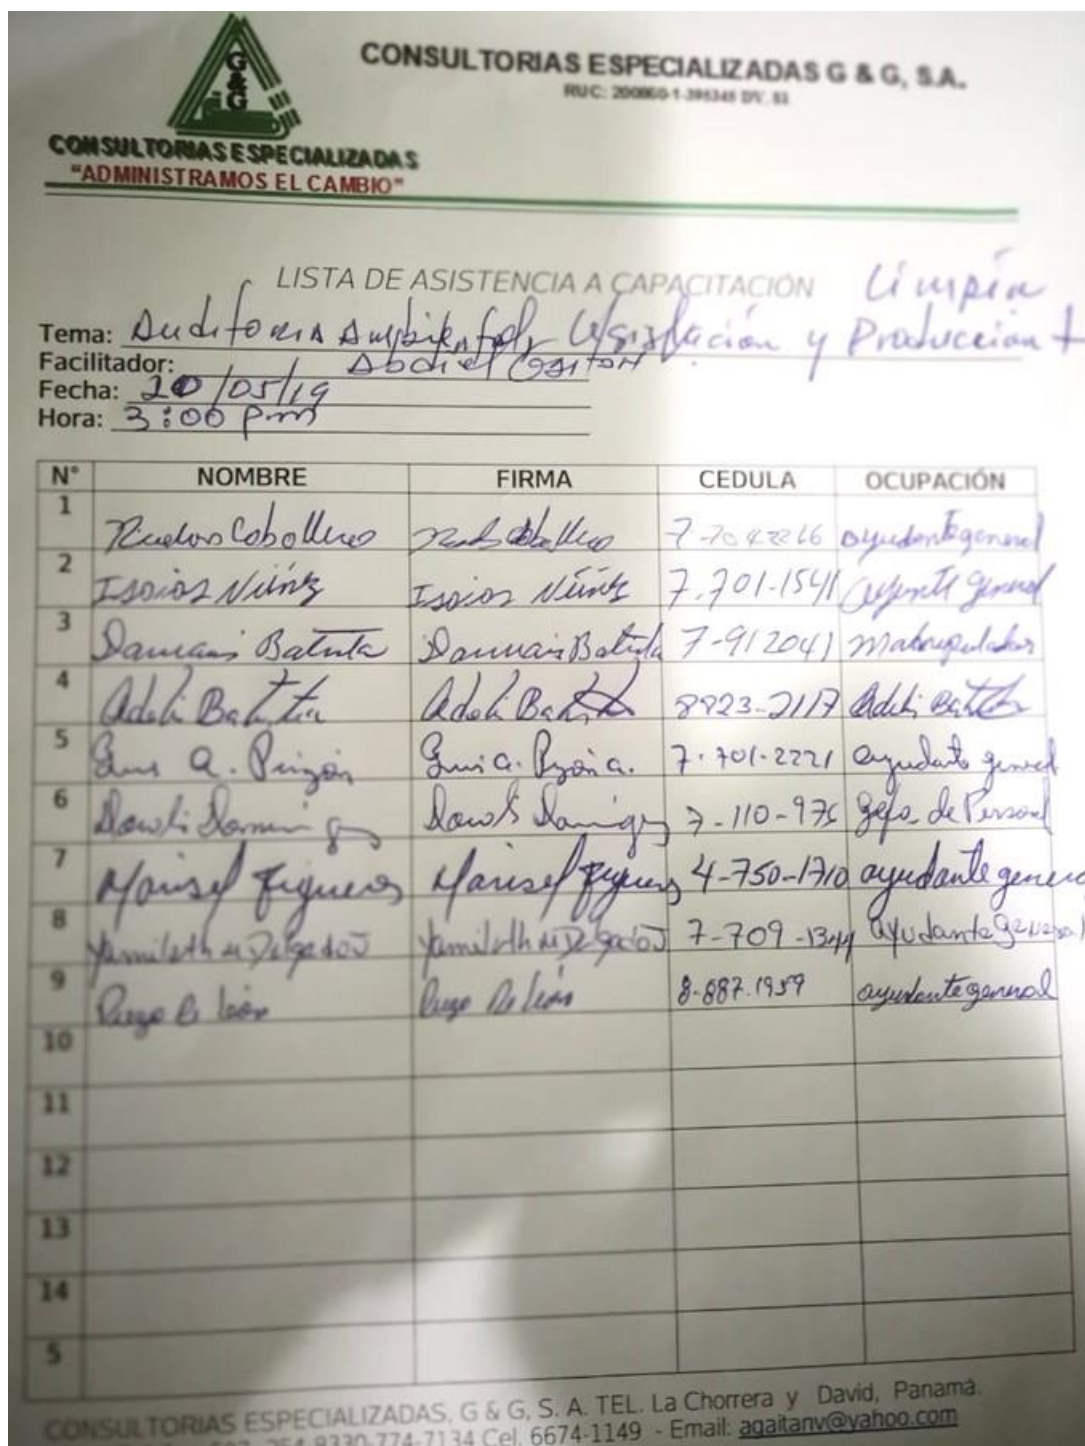 G&G
CONSULTORIAS ESPECIALIZADAS G & G, S.A.
CONSULTORIAS ESPECIALIZADAS
"ADMINISTRAMOS EL CAMBIO"
LISTA DE ASISTENCIA A CAPACITACIÓN
Limpia
Tema: Auditoria Ambiental, Legislación y Produccion +
Facilitador: Abdiel Gaitan
Fecha: 20/05/19
Hora: 3:00 pm
N° NOMBRE FIRMA CEDULA OCUPACIÓN
1 Caballero Caballero ayudante general
2 Isaias Núñez Isaias Núñez 7.701-1541 general
3 Damaris Batista Damaris Batista 7-912041
4 Adeli Batista Adeli Batista Adeli Batista
5 Luis A. Pinzón Luis A. 7-701-2221 ayudante general
6 7-110-975 gefa de Personal
7 Marisel Figueroa Marisel Figueroa 4-750-1710 ayudante general
8 Yamileth M Delgado J Yamileth M Delgado J 7-709-1344 ayudante general
9 De León De León 8-887.1959 ayudante general
10
11
12
13
14
5
CONSULTORIAS ESPECIALIZADAS, G & G, S. A. TEL. La Chorrera y David, Panamá.
8330-774-7134 Cel. 6674-1149 - Email: agaitanv@yahoo.com